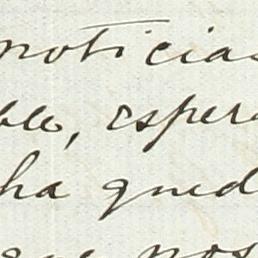 noticias
ble, espera
ha qued
que nos